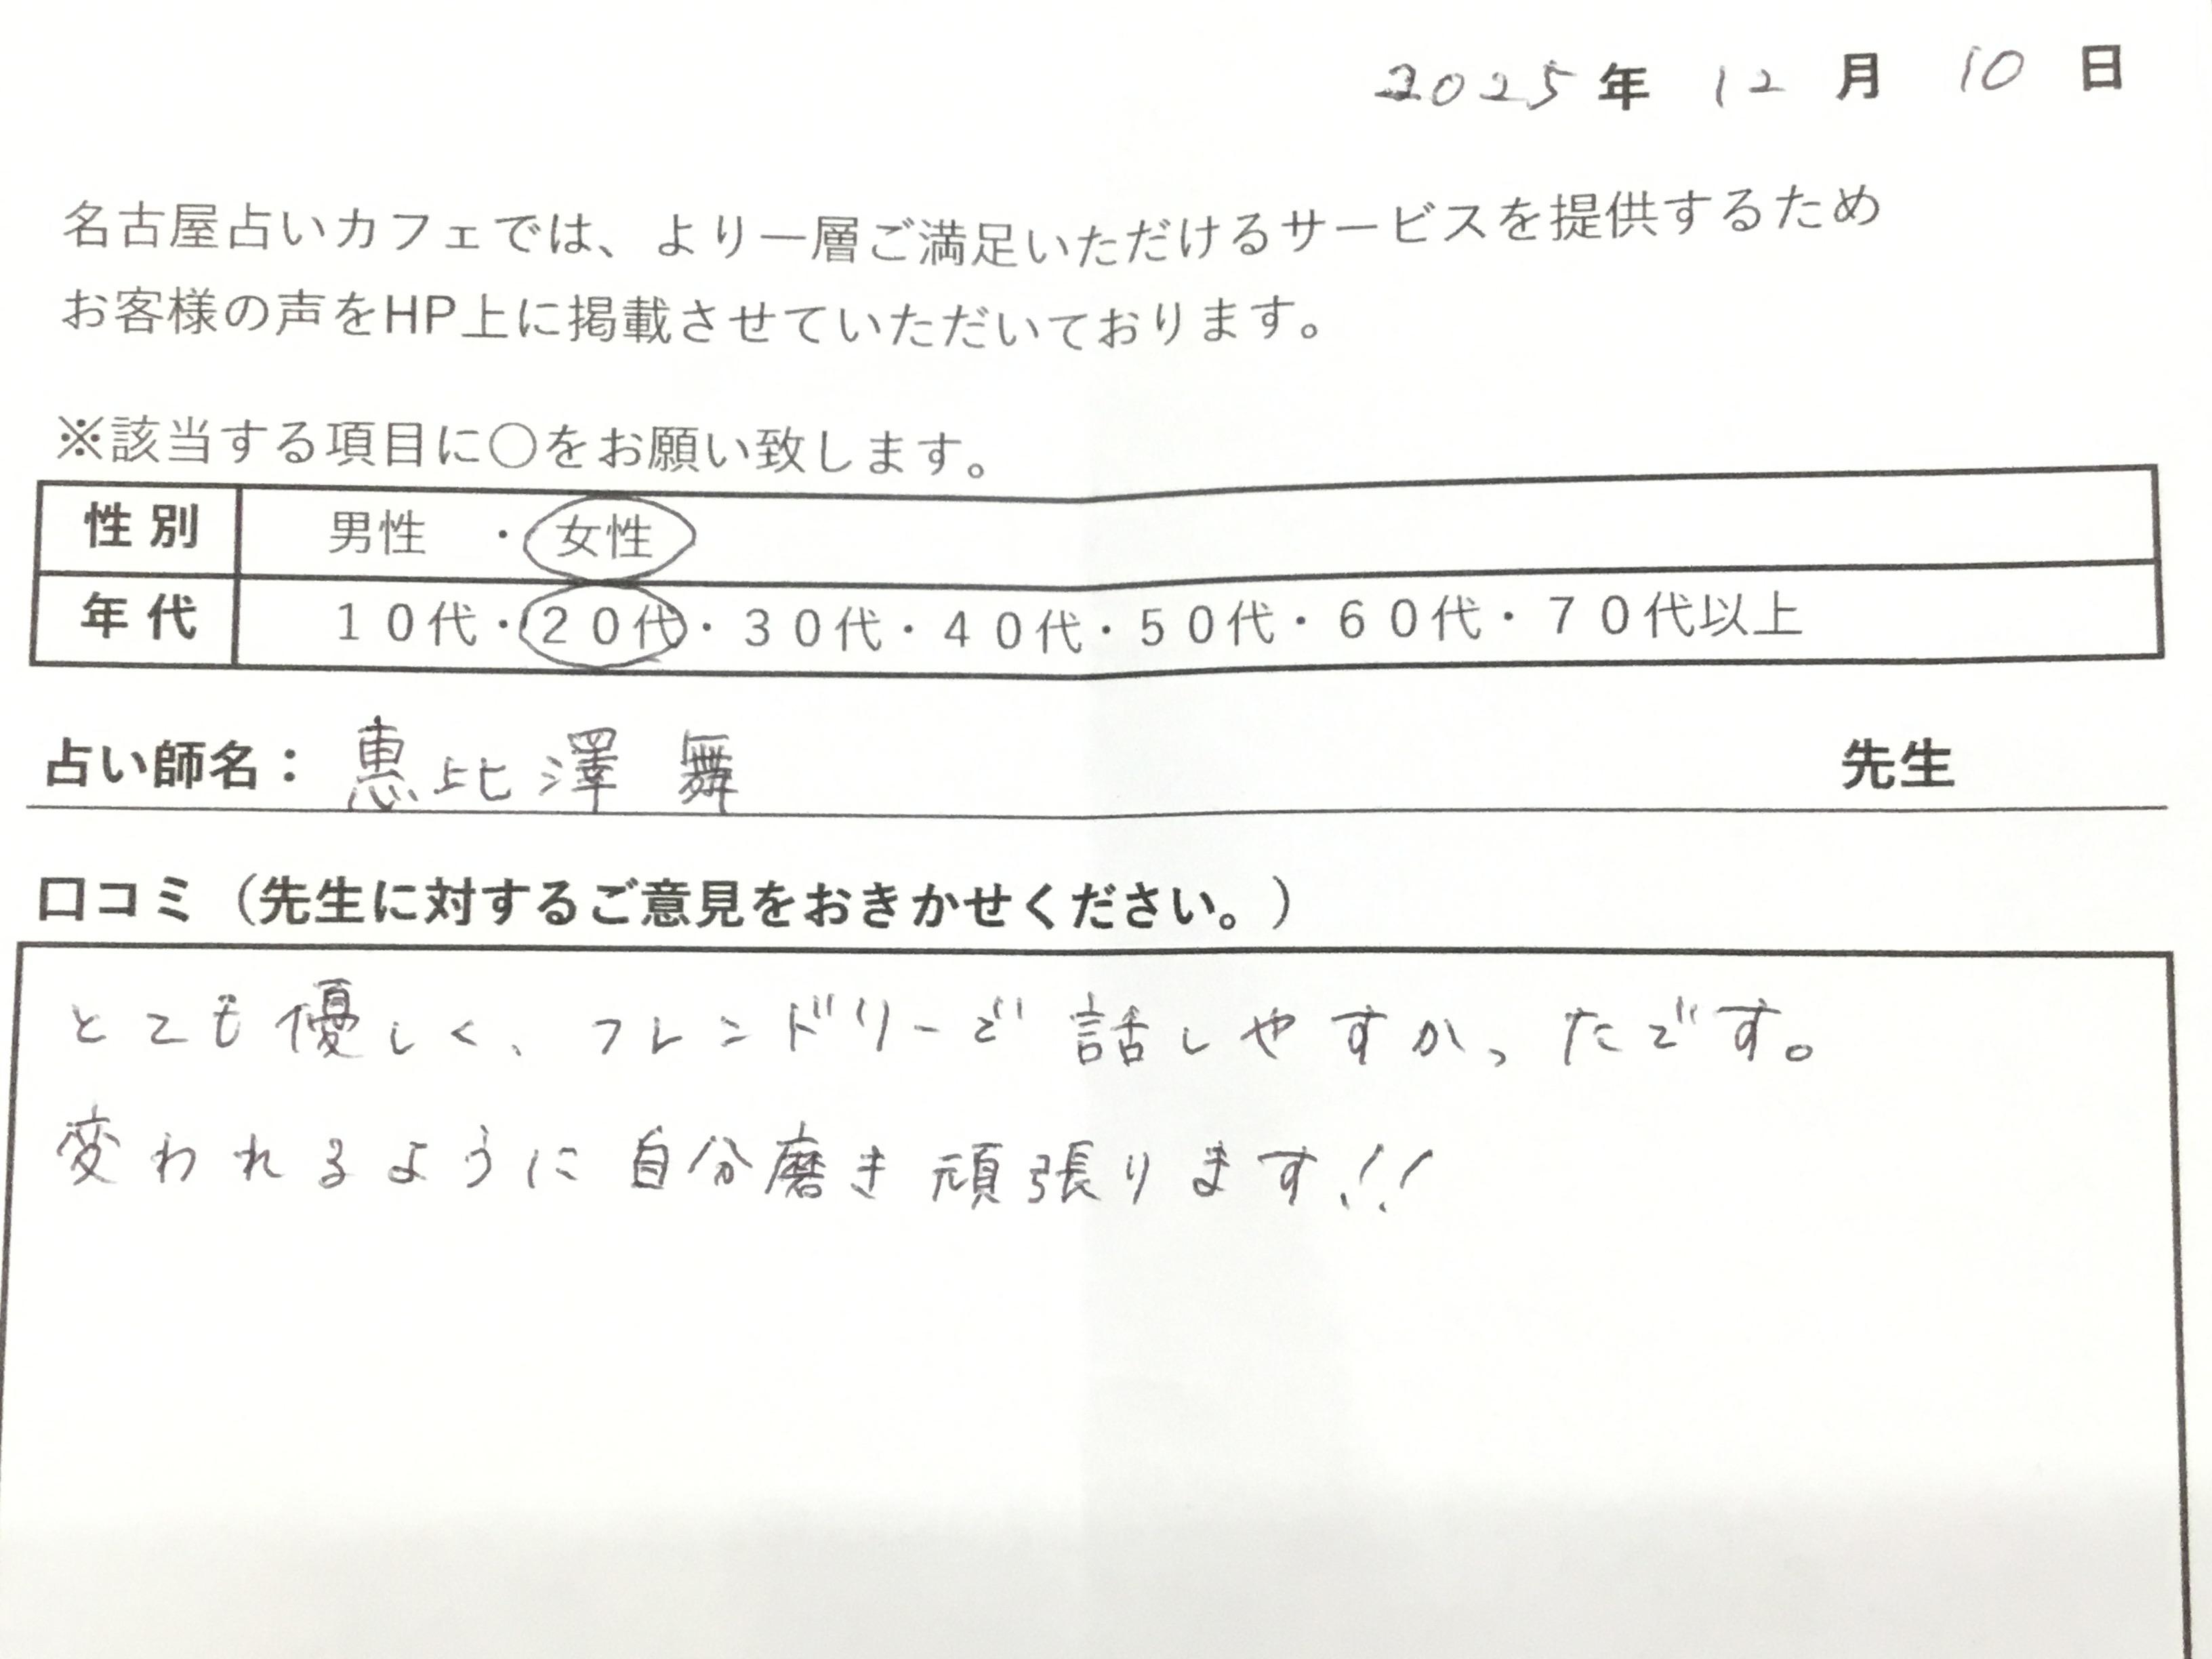 2025年 12月 10日
名古屋占いカフェでは、より一層ご満足いただけるサービスを提供するため
お客様の声をHP上に掲載させていただいております。
※該当する項目に〇をお願い致します。
性別 男性 ・ 女性
年代 10代・20代・30代・40代・50代・60代・70代以上
占い師名： 恵比澤 舞 先生
口コミ（先生に対するご意見をおきかせください。）
とても優しく、フレンドリーで話しやすかったです。
変われるように自分磨き頑張ります!!